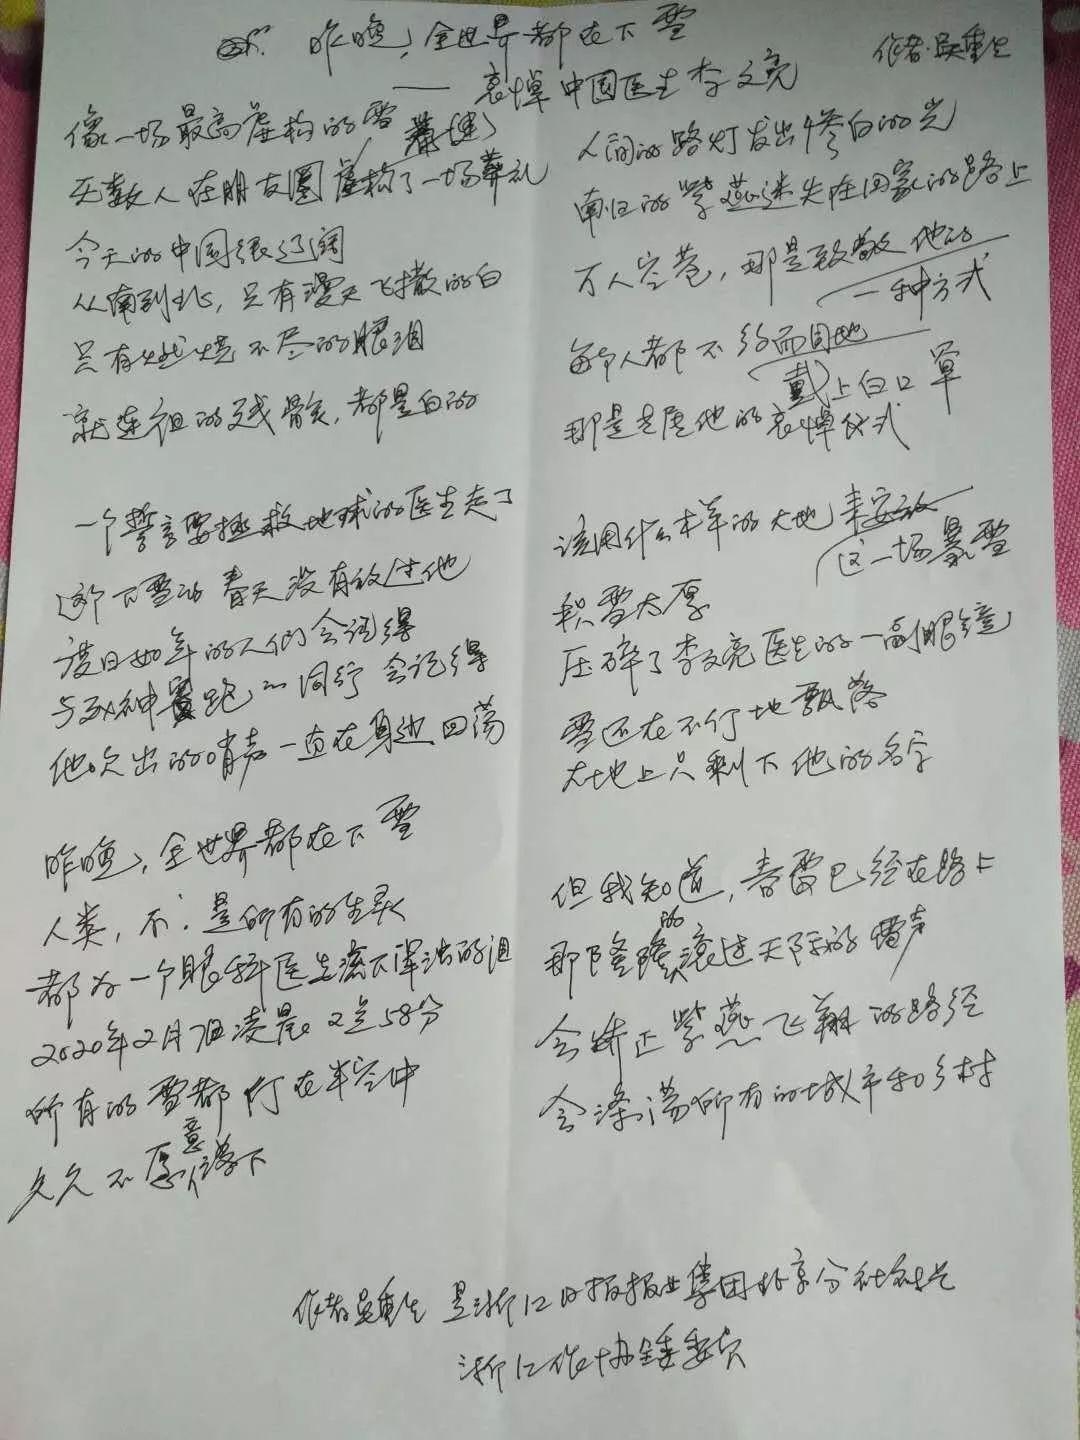 昨晚，全世界都在下雪
作者：吴重生
——哀悼中国医生李文亮
像一场最高虚构的雪
无数人在朋友圈虚构了一场葬礼
今天的中国很辽阔
从南到北，只有漫天飞撒的白
只有燃烧不尽的眼泪
就连祖的残骸，都是白的
一个誓言要拯救地球的医生走了
这个下雪的春天没有放过他
度日如年的人们会记得
与死神赛跑的同行会记得
他吹出的哨声一直在身边回荡
昨晚，全世界都在下雪
人类，不，是所有的生灵
都为一个眼科医生流下浑浊的泪
2020年2月7日凌晨2点58分
所有的雪都停在半空中
久久不愿意落下
人间的路灯发出惨白的光
南归的紫燕迷失在回家的路上
万人空巷，那是致敬他的
一种方式
每个人都不约而同地
戴上白口罩
那是克隆他的哀悼仪式
该用什么样的大地来安放
这一场暴雪
积雪太厚
压碎了李文亮医生的一副眼镜
雪还在不停地飘落
大地上只剩下他的名字
但我知道，春雷已经在路上
那隆隆的滚过天际的雷声
会矫正紫燕飞翔的路径
会涤荡所有的城市和乡村
作者吴重生是浙江日报报业集团北京分社社长
浙江作协全委委员